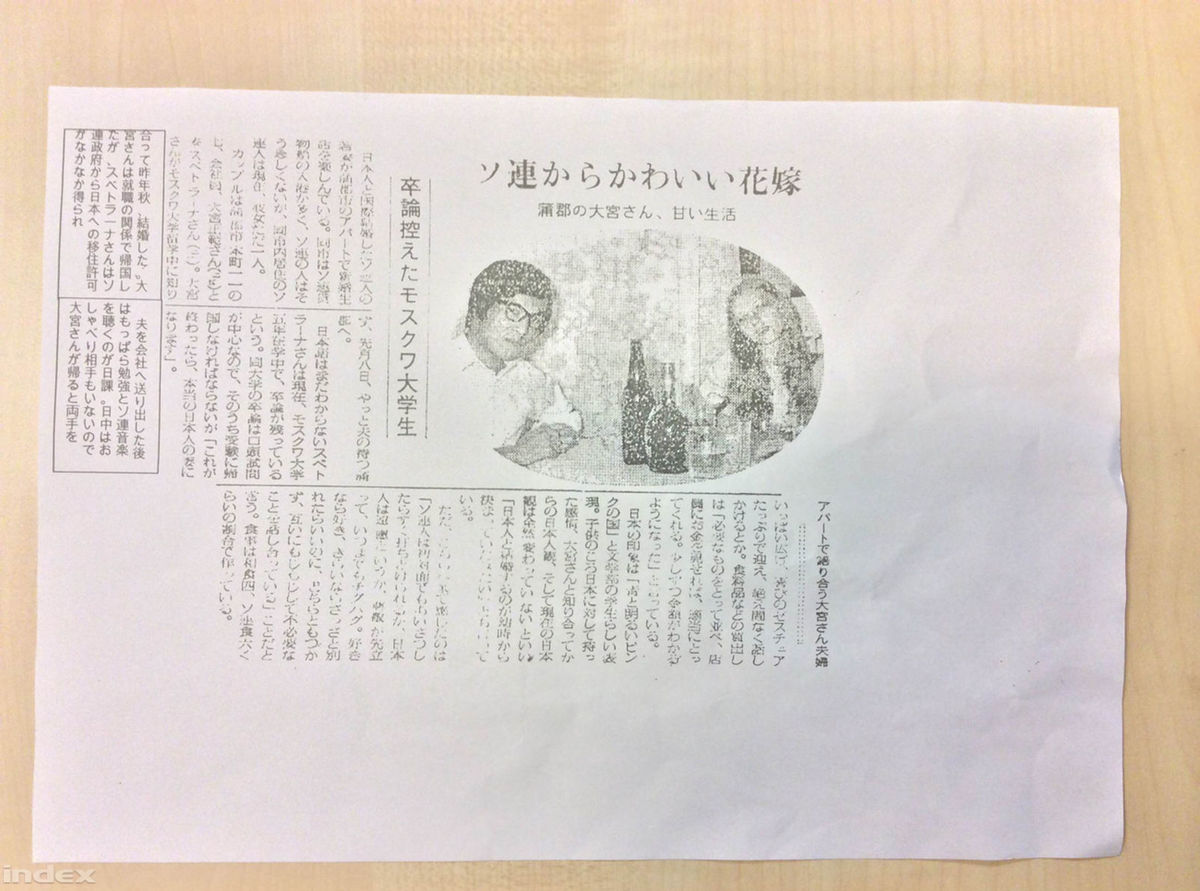 ソ連からかわいい花嫁
蒲郡の大宮さん、甘い生活
卒論控えたモスクワ大学生
日本人と国際結婚したソ連人の
活を楽しんでいる。同市はソ連貨
物船の入港が多く、ソ連の人はそ
う珍しくないが、同市内居住のソ
連人は現在、彼女ただ一人。
カップルは蒲郡市本町一一の
さんがモスクワ大学留学中に知り
合って昨年秋、結婚した。大
宮さんは就職の関係で帰国し
たが、スベトラーナさんはソ
連政府から日本への移住許可
がなかなか得られ
ず、先月八日、やっと夫の待つ蒲
郡へ。
日本語はまだわからないスベト
ラーナさんは現在、モスクワ大学
五年在学中で、卒論が残っている
という。同大学の卒論は口頭試問
が中心なので、そのうち受験に帰
国しなければならないが「これが
終わったら、本当の日本人の妻に
なります」。
夫を会社へ送り出した後
はもっぱら勉強とソ連音楽
を聴くのが日課。日中はお
しゃべり相手もいないので
大宮さんが帰ると両手を
アパートで語り合う大宮さん夫婦
いっぱい広げ、喜びのゼスチュア
たっぷりで迎え、絶え間なく話し
かけるとか。食料品などの買出し
は「必要なものをとって並べ、店
員にお金を見せれば、適当にとっ
てくれる。少しずつ金額がわかる
ようになった」といっている。
日本の印象は「青と明るいピン
クの国」と文学部の学生らしい表
現。子供のころ日本に対して持っ
た感情、大宮さんと知り合ってか
らの日本人観、そして現在の日本
観は全然変わっていないといい
「日本人と結婚するのが幼時から
いる。
「ソ連人は初対面でもあいさつし
たらすぐ打ちとけられるが、日本
って、いつまでもチグハグ。好き
なら好き、きらいならさっさと別
れたらいいのに、どちらともつか
ず、互いにもじもじして不必要な
ことを話し合っている」ことだと
言う。食事は和食四、ソ連食六ぐ
らいの割合で作っている。
index